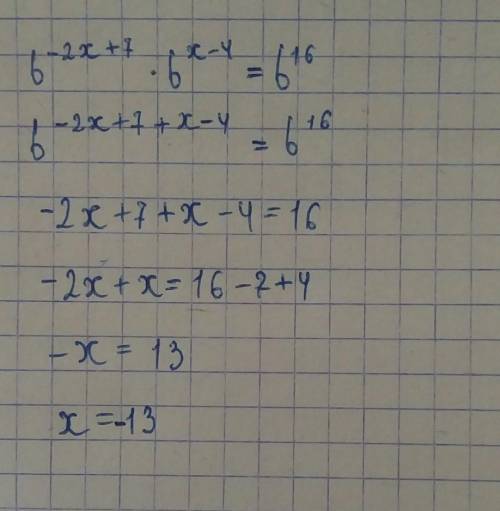 6^{-2x+7} · 6^{x-4} = 6^{16}
6^{-2x+7+x-4} = 6^{16}
-2x+7+x-4=16
-2x+x=16-7+4
-x=13
x=-13